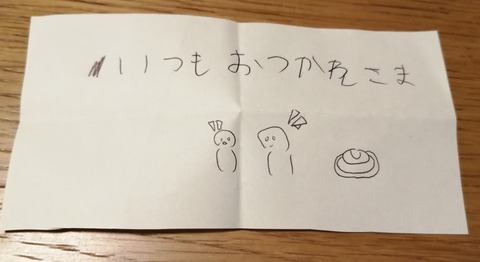 いつもおつかれこま